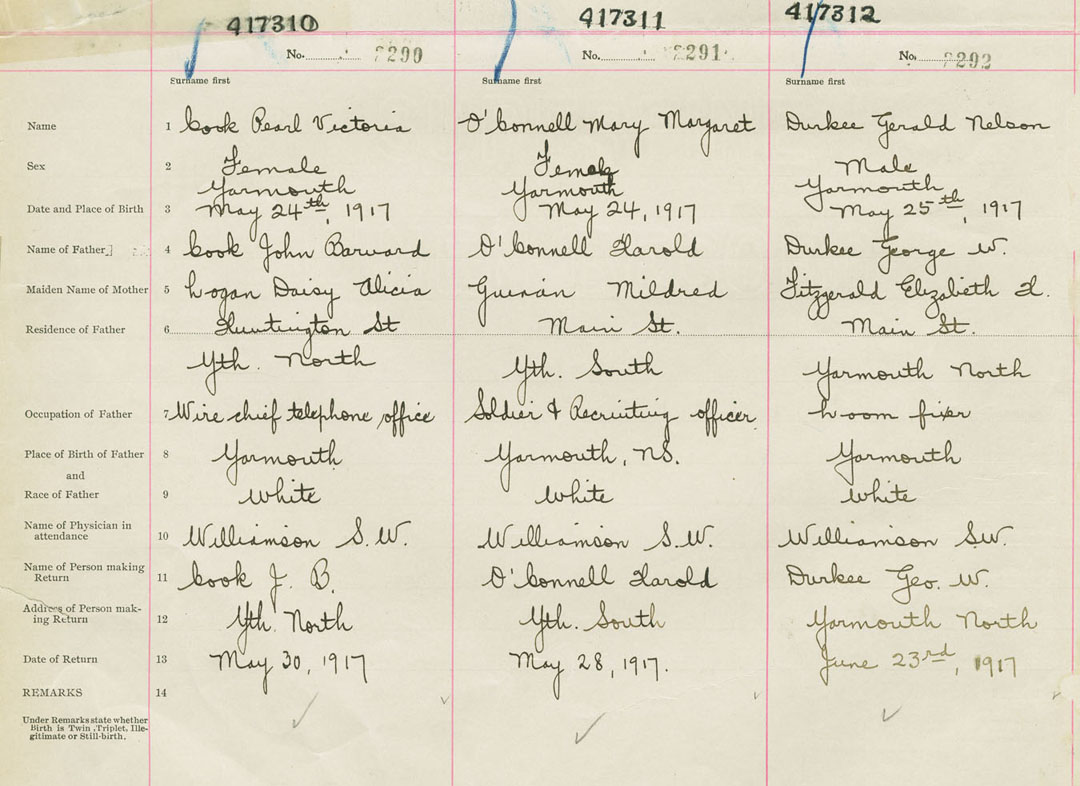 417310 417311 417312
No. No. No.
Surname first Surname first Surname first
Name 1 Cook Pearl Victoria O'Connell Mary Margaret Durkee Gerald Nelson
Sex 2 Female Female Male
Yarmouth Yarmouth Yarmouth
Date and Place of Birth 3 May 24th, 1917 May 24, 1917 May 25th, 1917
Name of Father 4 Cook John Barnard O'Connell Harold Durkee George W.
Maiden Name of Mother 5 Logan Daisy Alicia Mildred Fitzgerald Elizabeth H.
Residence of Father 6 Huntington St Main St. Main St.
Yth. North Yth. South Yarmouth North
Occupation of Father 7 Wire chief telephone office Soldier & Recruiting officer Loom fixer
Place of Birth of Father 8 Yarmouth Yarmouth, NS. Yarmouth
and
Race of Father 9 White White White
Name of Physician in
attendance 10 Williamson S.W. Williamson S.W. Williamson S.W.
Name of Person making
Return 11 Cook J. B. O'Connell Harold Durkee Geo. W.
Address of Person mak-
ing Return 12 Yth. North Yth. South Yarmouth North
Date of Return 13 May 30, 1917 May 28, 1917. June 23rd, 1917
REMARKS 14
Under Remarks state whether
Birth is Twin, Triplet, Ille-
gitimate or Still-birth.